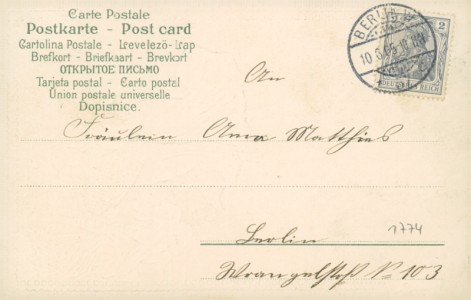 Carte Postale
Postkarte - Post card
Cartolina Postale - Levelező-Lap
Brefkort - Briefkaart - Brevkort
ОТКРЫТОЕ ПИСЬМО
Tarjeta postal - Carto postel
Union postale universelle
Dopisnice.
BERLIN
10.6.05
2
DEUTSCHES REICH
An
Fräulein Anna Matthies
1774
Berlin
Wrangelstr. No 103